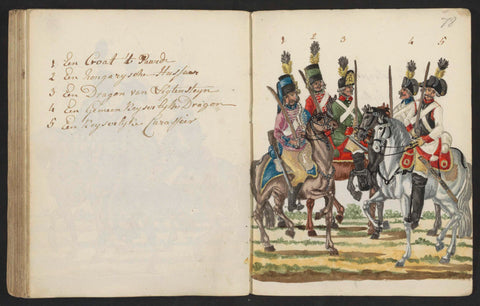 1 Een Croat te Paerde
2 Een Hongarysche Hussaar
3 Een Dragon van Ligtensteyn
4 Een Gemeen Keyserlyke Dragon
5 Een Keyserlyke Curassier
78
1 2 3 4 5